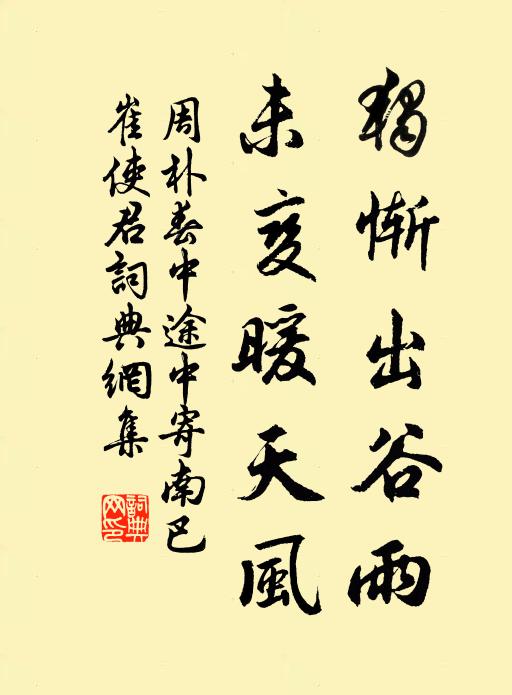 獨慚出谷雨
未變暖天風
周朴春中途中寄南巴
崔使君詞典網集
詞典網印